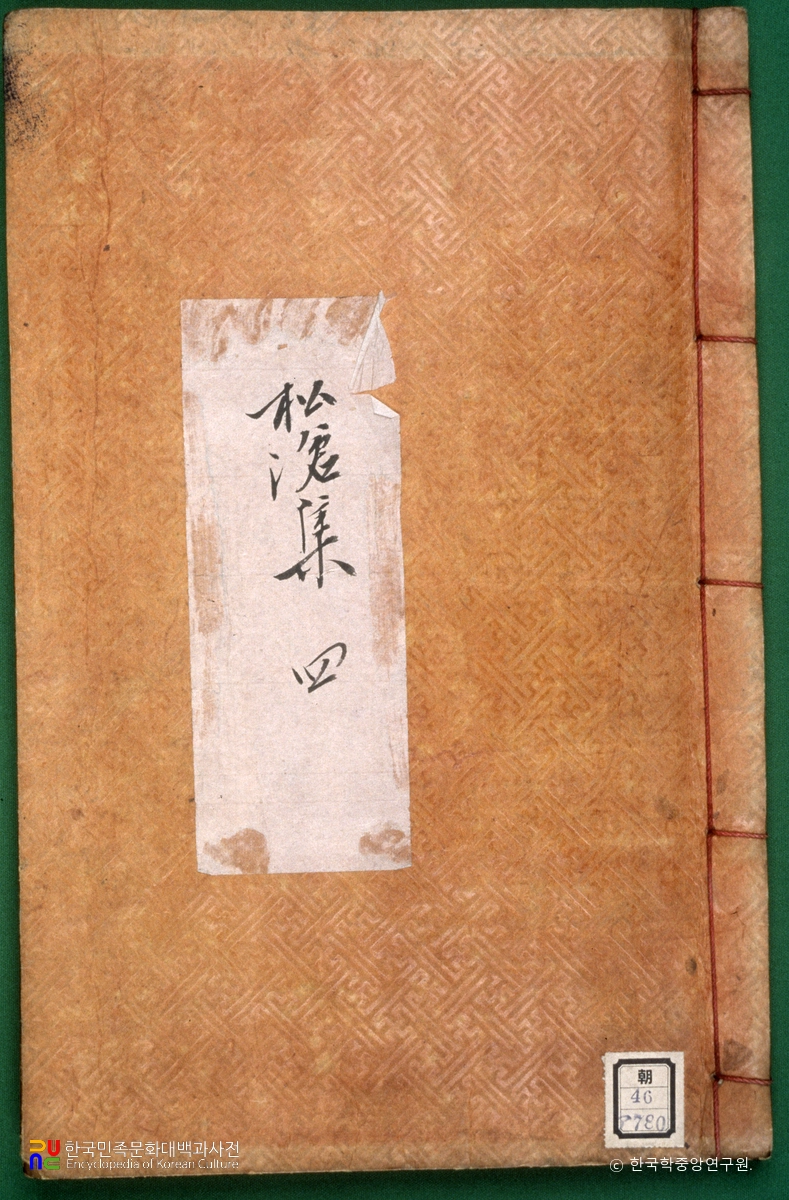 松滄集 四
朝
46
한국민족문화대백과사전
Encyclopedia of Korean Culture
© 한국학중앙연구원.